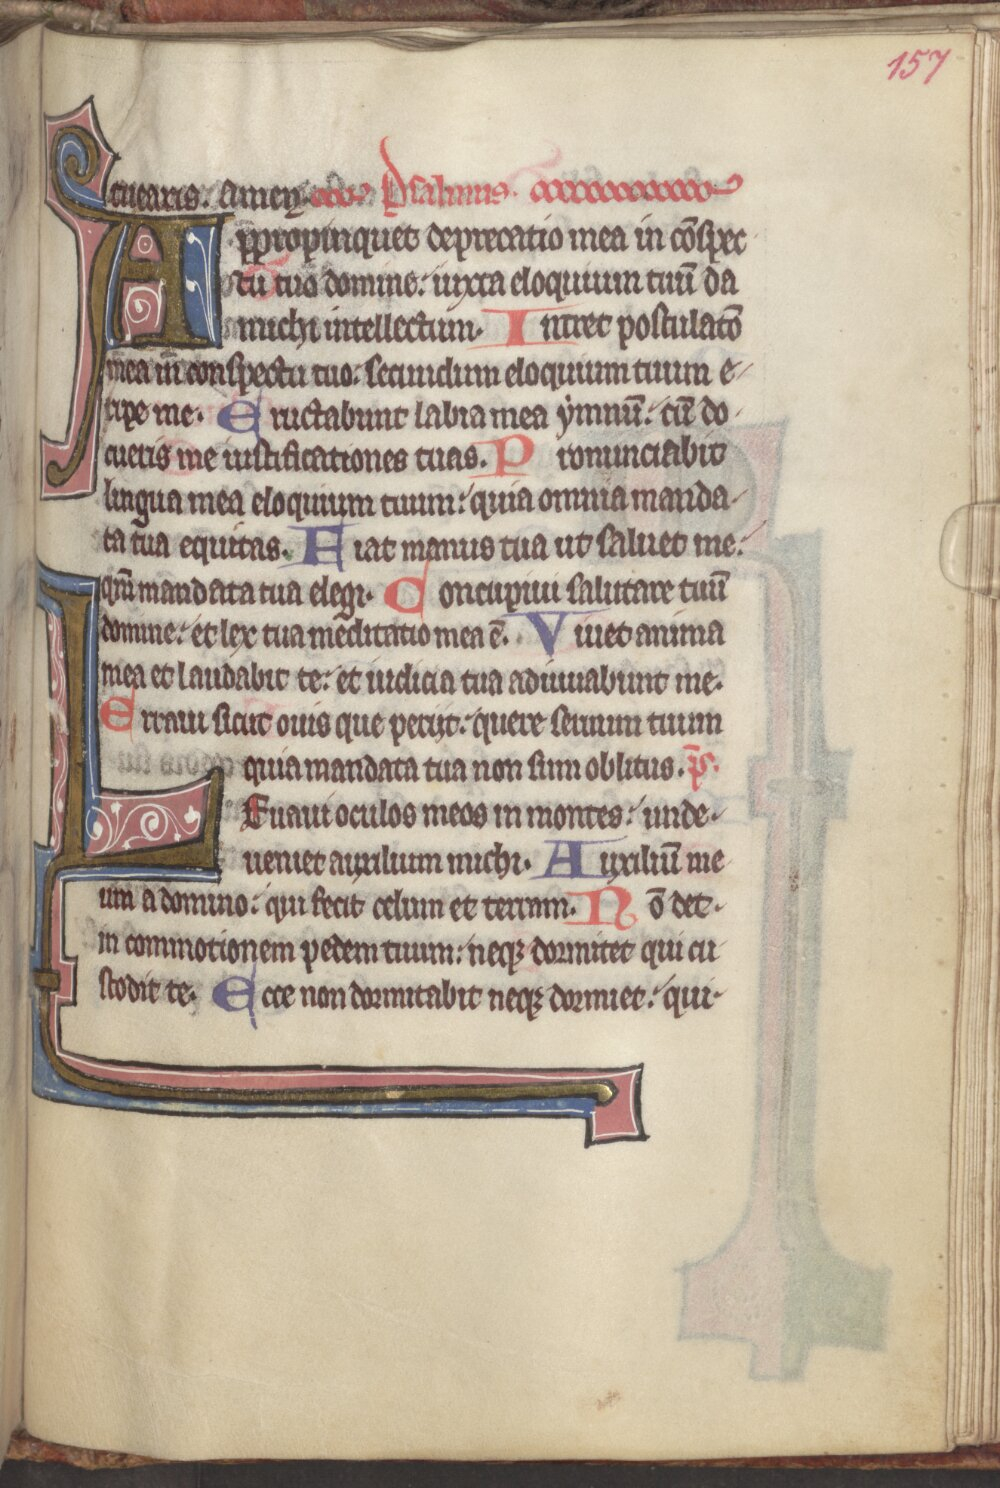 157
ctuearis. Amen. Psalmus.
Appropinquet deprecatio mea in cōspec
tu tuo domine: iuxta eloquium tuū da
michi intellectum. Intret postulatō
mea in conspectu tuo: secundum eloquium tuum e
ripe me. Eructabunt labia mea ẏmnū: cū do
cueris me iustificationes tuas. Pronunciabit
lingua mea eloquium tuum: quia omnia manda
ta tua equitas. Fiat manus tua ut saluet me:
qm̄ mandata tua elegi. Concupiui salutare tuū
domine: et lex tua meditatio mea ē. Viuet anima
mea et laudabit te: et iudicia tua adiuuabunt me.
Erraui sicut ouis que periit: quere seruum tuum
quia mandata tua non sum oblitus. p̄s.
Leuaui oculos meos in montes: unde
ueniet auxilium michi. Auxiliū me
um a domino: qui fecit celum et terram. Nō det
in commotionem pedem tuum: neqꝫ dormitet qui cu
stodit te. Ecce non dormitabit neqꝫ dormiet: qui